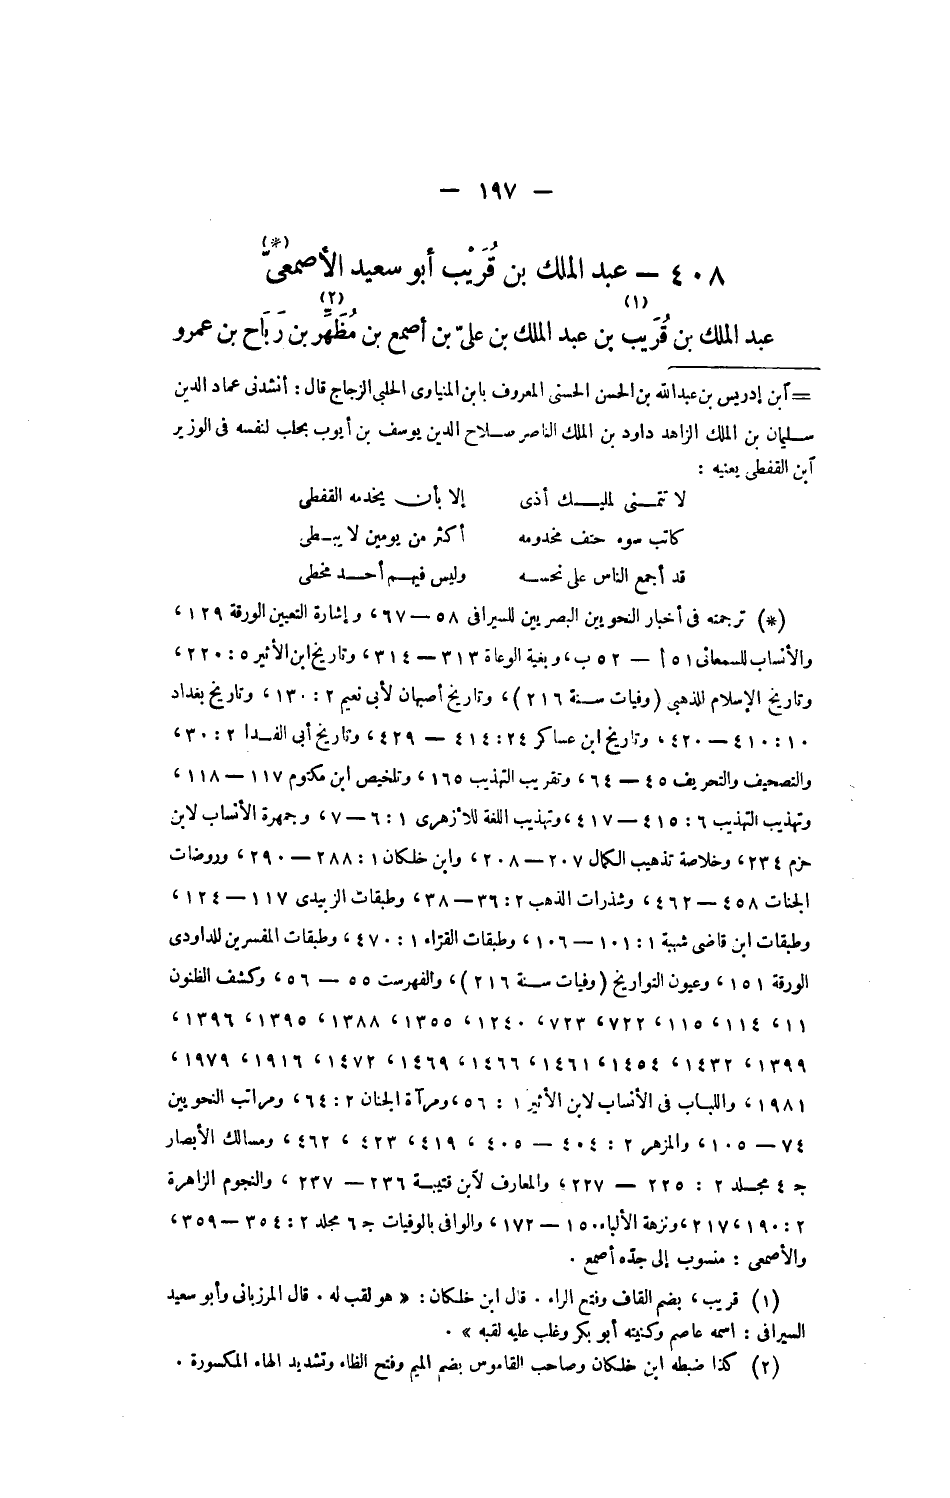 — ١٩٧ —
٤٠٨ — عبد الملك بن قُرَيْب أبو سعيد الأصمعىّ (*)
عبد الملك بن قُرَيب (١) بن عبد الملك بن علىّ بن أصمع بن مُظَهِّر (٢) بن رَبَاح بن عمرو
= آبن إدريس بن عبدالله بن الحسن الحسنى المعروف بابن المنياوى الحلبى الزجاج قال : أنشدنى عماد الدين
سليمان بن الملك الزاهد داود بن الملك الناصر صلاح الدين يوسف بن أيوب بحلب لنفسه فى الوزير
آبن القفطى يعنيه :
لا تتمنى لمليك أذى إلا بأن يخدمه القفطى
كاتب سوء حتف مخدومه أكثر من يومين لا يبطى
قد أجمع الناس على نحسه وليس فيهم أحد مخطى
(*) ترجمته فى أخبار النحويين البصريين للسيرافى ٥٨ — ٦٧، و إشارة التعيين الورقة ١٢٩،
والأنساب للسمعانى ٥١ أ — ٥٢ ب، و بغية الوعاة ٣١٣ — ٣١٤، وتاريخ ابن الأثير ٥ : ٢٢٠،
وتاريخ الإسلام للذهبى (وفيات سنة ٢١٦)، وتاريخ أصبهان لأبى نعيم ٢ : ١٣٠، وتاريخ بغداد
١٠ : ٤١٠ — ٤٢٠، وتاريخ ابن عساكر ٢٤ : ٤١٤ — ٤٢٩، وتاريخ أبى الفدا ٢ : ٣٠،
والتصحيف والتحريف ٤٥ — ٦٤، وتقريب التهذيب ١٦٥، وتلخيص ابن مكتوم ١١٧ — ١١٨،
وتهذيب التهذيب ٦ : ٤١٥ — ٤١٧، وتهذيب اللغة للأزهرى ١ : ٦ — ٧، وجمهرة الأنساب لابن
حزم ٢٣٤، وخلاصة تذهيب الكمال ٢٠٧ — ٢٠٨، وابن خلكان ١ : ٢٨٨ — ٢٩٠، وروضات
الجنات ٤٥٨ — ٤٦٢، وشذرات الذهب ٢ : ٣٦ — ٣٨، وطبقات الزبيدى ١١٧ — ١٢٤،
وطبقات ابن قاضى شهبة ١ : ١٠١ — ١٠٦، وطبقات القرّاء ١ : ٤٧٠، وطبقات المفسرين للداودى
الورقة ١٥١، وعيون التواريخ (وفيات سنة ٢١٦)، والفهرست ٥٥ — ٥٦، وكشف الظنون
١١، ١١٤، ١١٥، ٧٢٢، ٧٢٣، ١٢٤٠، ١٣٥٥، ١٣٨٨، ١٣٩٥، ١٣٩٦،
١٣٩٩، ١٤٣٢، ١٤٥٤، ١٤٦١، ١٤٦٦، ١٤٦٩، ١٤٧٢، ١٩١٦، ١٩٧٩،
١٩٨١، واللباب فى الأنساب لابن الأثير ١ : ٥٦، ومرآة الجنان ٢ : ٦٤، ومراتب النحويين
٧٤ — ١٠٥، والمزهر ٢ : ٤٠٤ — ٤٠٥، ٤١٩، ٤٢٣، ٤٦٢، ومسالك الأبصار
جـ ٤ مجلد ٢ : ٢٢٥ — ٢٢٧، والمعارف لآبن قتيبة ٢٣٦ — ٢٣٧، والنجوم الزاهرة
٢ : ١٩٠، ٢١٧، ونزهة الألباء ١٥٠ — ١٧٢، والوافى بالوفيات جـ ٦ مجلد ٢ : ٣٥٤ — ٣٥٩،
والأصمعى : منسوب إلى جدّه أصمع .
(١) قريب، بضم القاف وفتح الراء . قال ابن خلكان : « هو لقب له . قال المرزبانى وأبو سعيد
السيرافى : اسمه عاصم وكنيته أبو بكر وغلب عليه لقبه » .
(٢) كذا ضبطه ابن خلكان وصاحب القاموس بضم الميم وفتح الظاء وتشديد الهاء المكسورة .